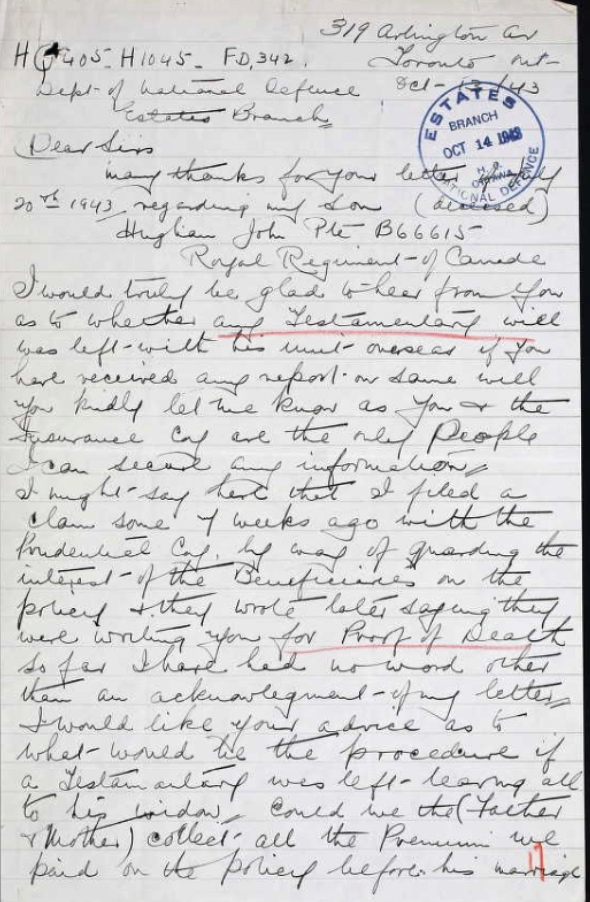 319 Arlington Av
HQ 405-H1045- FD,342.
Toronto Ont-
Dept- of National Defence
Oct- 13/43
Estates Branch
ESTATES
BRANCH
OCT 14 1943
H. Q.
OTTAWA
NATIONAL DEFENCE
Dear Sirs
many thanks for your letter of
20th 1943, regarding my son (deceased)
John Pte B66615-
Royal Regiment- of Canada
I would truly be glad to hear from you
as to whether any Testamentary will
was left- with his unit- overseas if you
have received any report- on same will
you kindly let me know as you & the
Insurance Coy are the only People
I can secure any information,
I might- say here that I filed a
claim some 7 weeks ago with the
Prudential Coy, by way of guarding the
interest- of the Beneficiaries on the
policy & they wrote later saying they
were writing you for Proof of Death
so far I have had no word other
than an acknowlegment- of my letter,
I would like your advice as to
what- would be the procedure if
a Testamentary was left- leaving all
to his widow, could we the (Father
& Mother) collect- all the Premium we
paid on the policy before his marriage